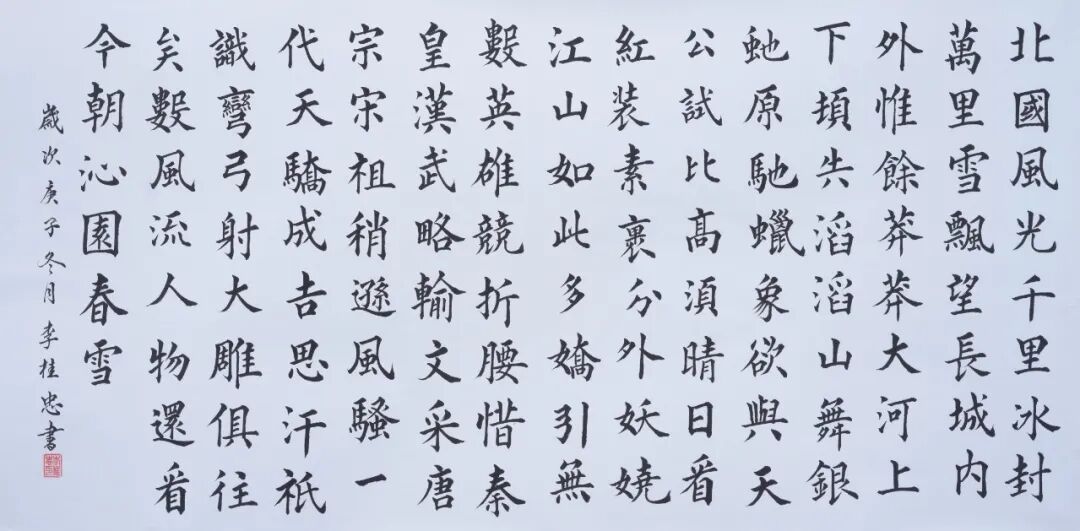 北國風光千里冰封
萬里雪飄望長城内
外惟餘莽莽大河上
下頓失滔滔山舞銀
虵原馳蠟象欲與天
公試比髙湏晴日看
紅装素裹分外妖嬈
江山如此多嬌引無
數英雄競折腰惜秦
皇漢武略輸文采唐
宗宋祖稍遜風騷一
代天驕成吉思汗祇
識彎弓射大雕俱往
矣數風流人物還看
今朝沁園春雪
歲次庚子冬月李桂忠書